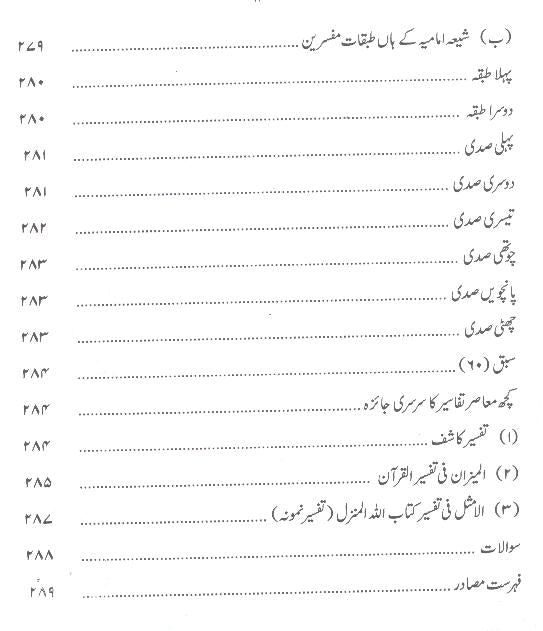 (ب) شیعہ امامیہ کے ہاں طبقات مفسرین ۲۷۹
پہلا طبقہ ۲۸۰
دوسرا طبقہ ۲۸۰
پہلی صدی ۲۸۱
دوسری صدی ۲۸۱
تیسری صدی ۲۸۲
چوتھی صدی ۲۸۳
پانچویں صدی ۲۸۳
چھٹی صدی ۲۸۳
سبق (۶۰) ۲۸۴
کچھ معاصر تفاسیر کا سرسری جائزہ ۲۸۴
(۱) تفسیر کاشف ۲۸۴
(۲) المیزان فی تفسیر القرآن ۲۸۵
(۳) الامثل فی تفسیر کتاب اللہ المنزل (تفسیر نمونہ) ۲۸۷
سوالات ۲۸۸
فہرست مصادر ۲۸۹